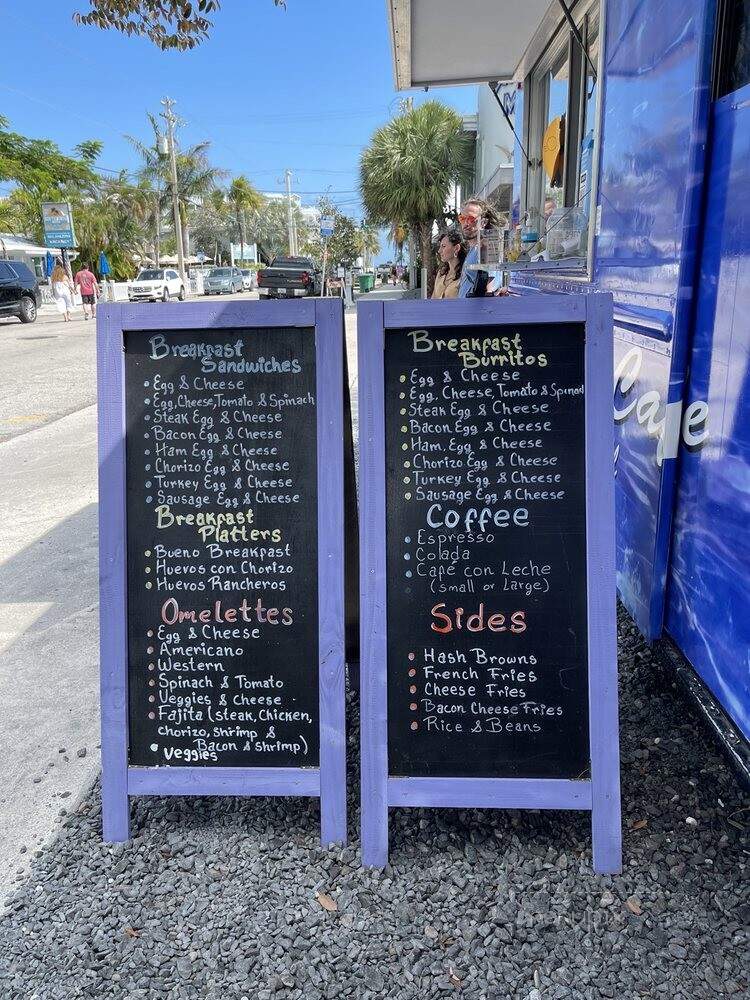 Breakfast
Sandwiches
Egg & Cheese
Egg, Cheese, Tomato & Spinach
Steak Egg & Cheese
Bacon Egg & Cheese
Ham Egg & Cheese
Chorizo Egg & Cheese
Turkey Egg & Cheese
Sausage Egg & Cheese
Breakfast
Platters
Bueno Breakfast
Huevos con Chorizo
Huevos Rancheros
Omelettes
Egg & Cheese
Americano
Western
Spinach & Tomato
Veggies & Cheese
Fajita (steak, Chicken,
chorizo, shrimp &
Bacon & shrimp)
Veggies
Breakfast
Burritos
Egg & Cheese
Egg, Cheese, Tomato & Spinach
Steak Egg & Cheese
Bacon Egg & Cheese
Ham, Egg & Cheese
Chorizo Egg & Cheese
Turkey Egg & Cheese
Sausage Egg & Cheese
Coffee
Espresso
Colada
Café con Leche
(small or Large)
Sides
Hash Browns
French Fries
Cheese Fries
Bacon Cheese Fries
Rice & Beans
Cafe